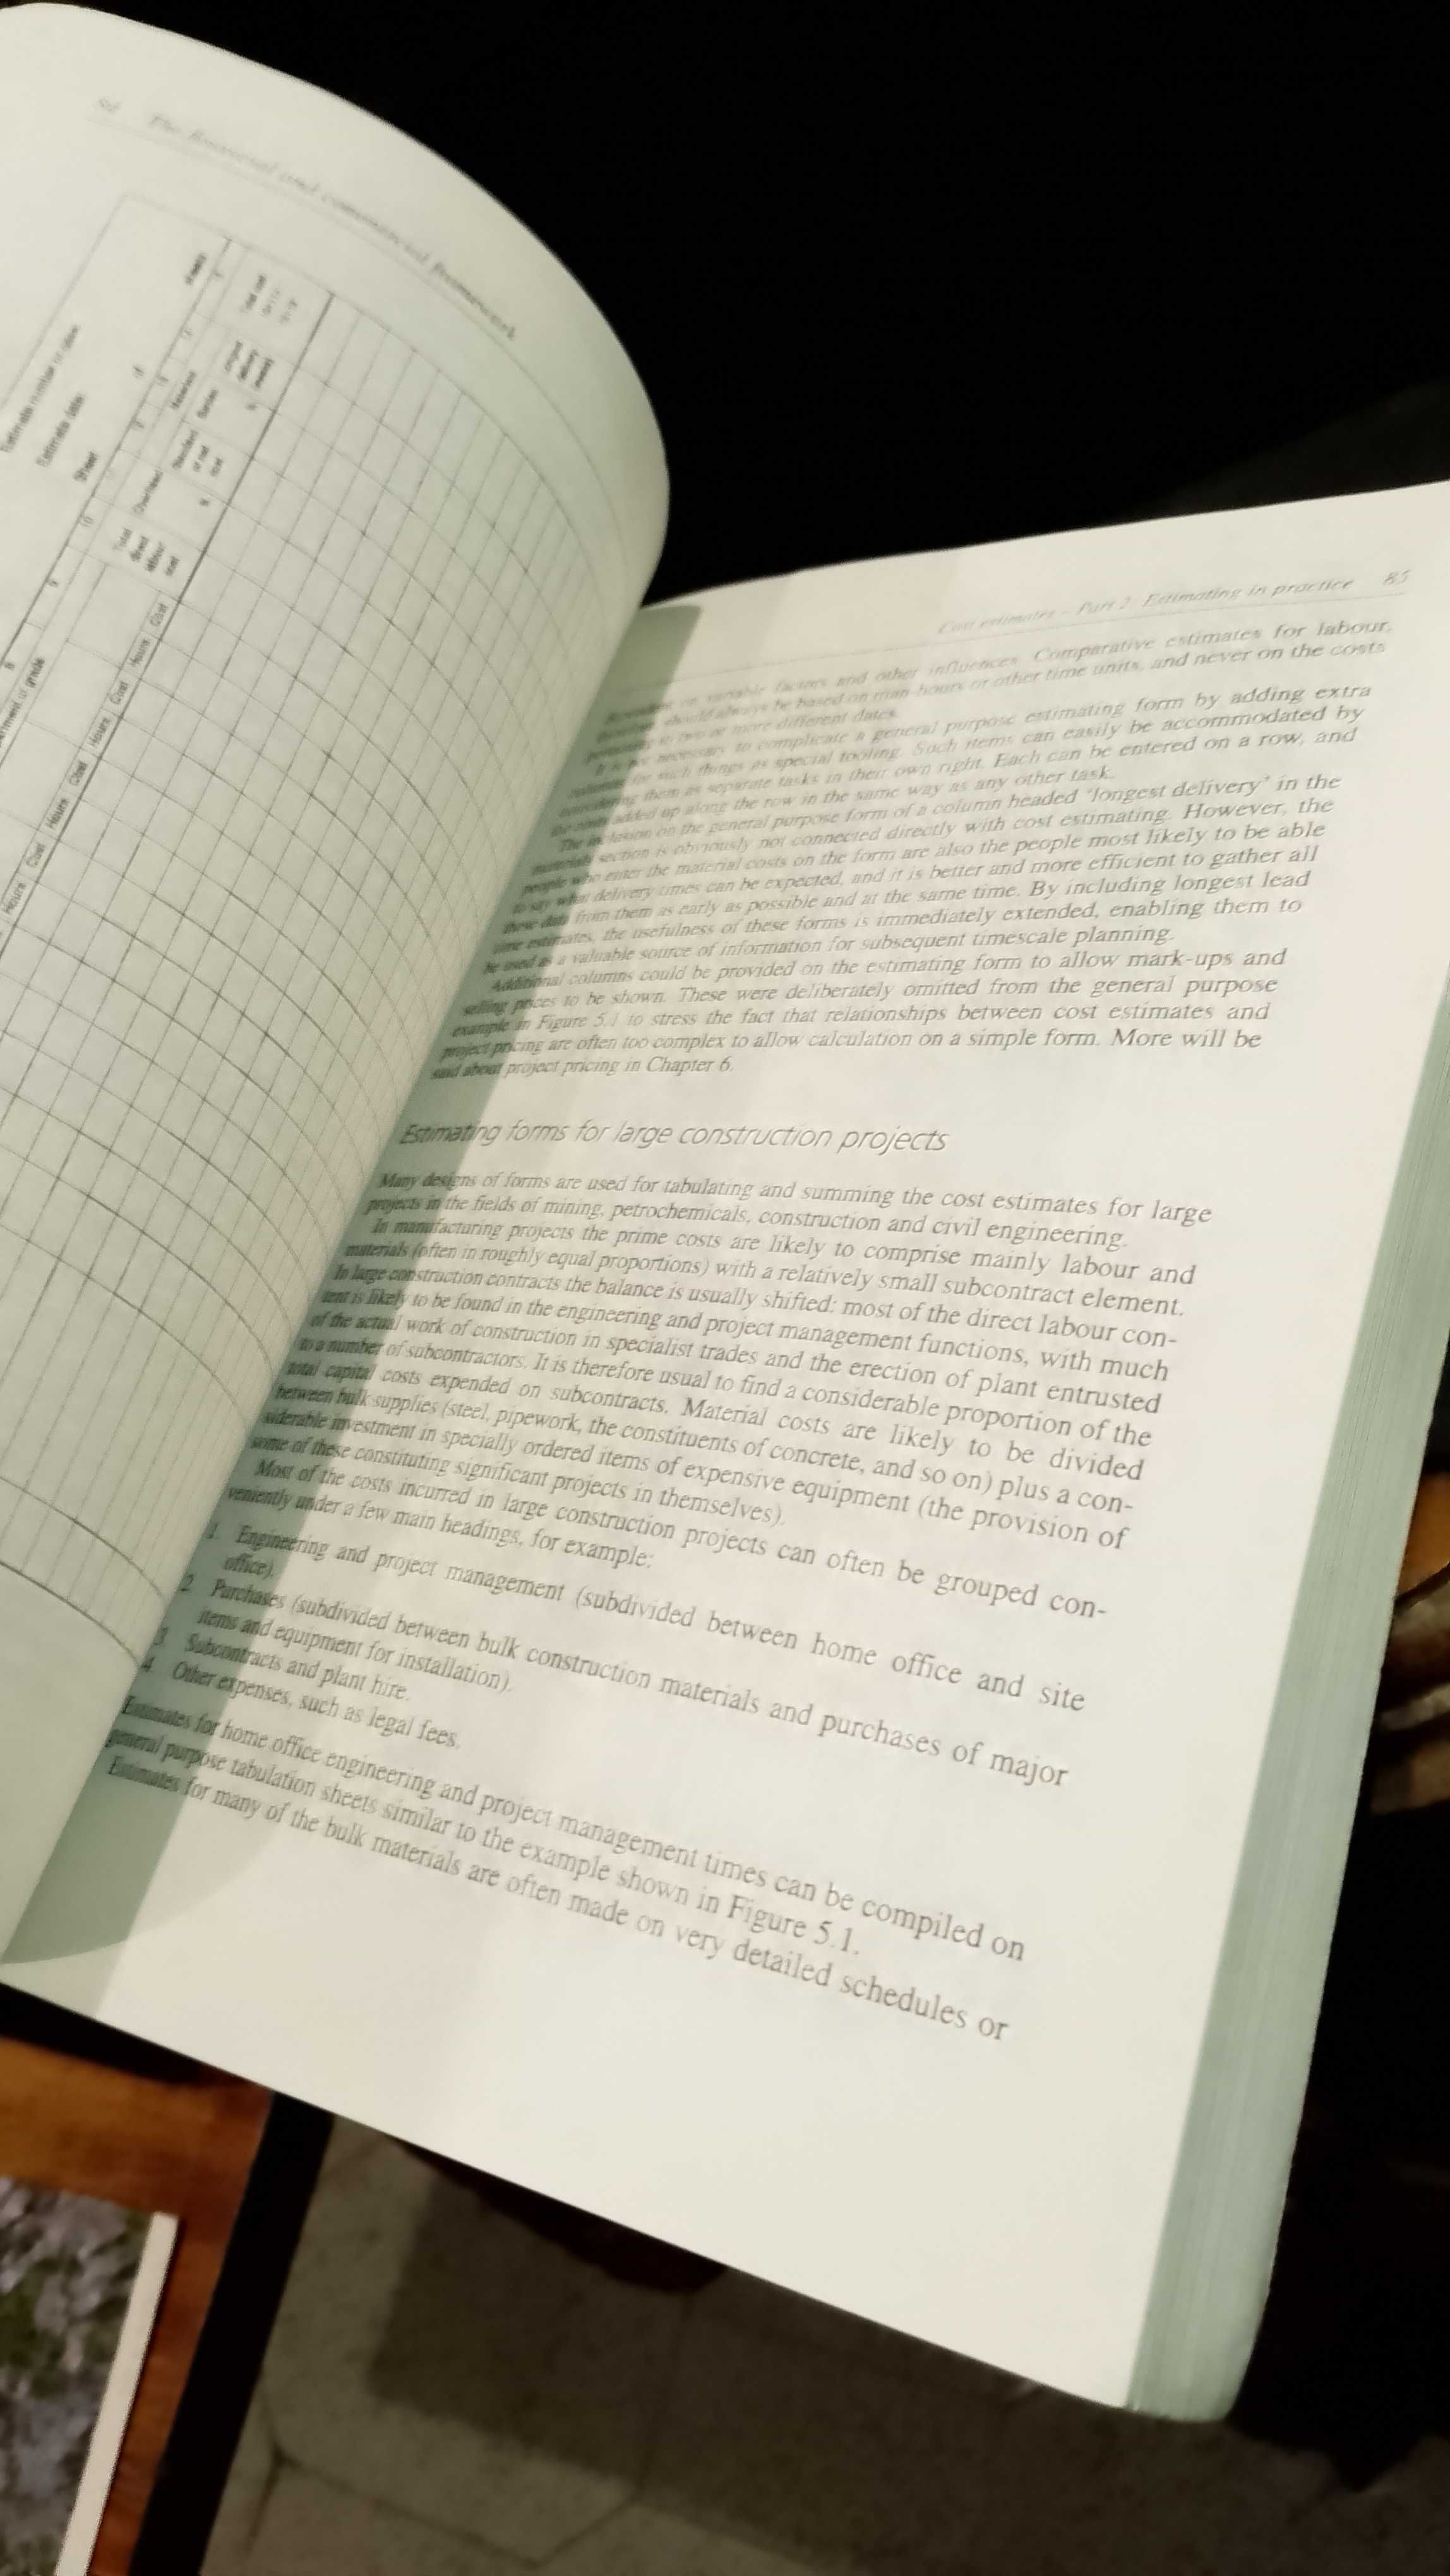 84 The financial and commercial framework
Estimate number or case
Estimate date
Sheet
of
sheets
Total
direct
labour
cost
Overhead
Materials
Standard
or net
cost
Burden
Longest
delivery
(weeks)
Total cost
Hours Cost Hours Cost Hours Cost Hours Cost
Cost estimates – Part 2 Estimating in practice 85
on variable factors and other influences. Comparative estimates for labour,
should always be based on man-hours or other time units, and never on the costs
pertaining to two or more different dates.
It is not necessary to complicate a general purpose estimating form by adding extra
columns for such things as special tooling. Such items can easily be accommodated by
considering them as separate tasks in their own right. Each can be entered on a row, and
the costs added up along the row in the same way as any other task.
The inclusion on the general purpose form of a column headed 'longest delivery' in the
materials section is obviously not connected directly with cost estimating. However, the
people who enter the material costs on the form are also the people most likely to be able
to say what delivery times can be expected, and it is better and more efficient to gather all
these data from them as early as possible and at the same time. By including longest lead
time estimates, the usefulness of these forms is immediately extended, enabling them to
be used as a valuable source of information for subsequent timescale planning.
Additional columns could be provided on the estimating form to allow mark-ups and
selling prices to be shown. These were deliberately omitted from the general purpose
example in Figure 5.1 to stress the fact that relationships between cost estimates and
project pricing are often too complex to allow calculation on a simple form. More will be
said about project pricing in Chapter 6.
Estimating forms for large construction projects
Many designs of forms are used for tabulating and summing the cost estimates for large
projects in the fields of mining, petrochemicals, construction and civil engineering.
In manufacturing projects the prime costs are likely to comprise mainly labour and
materials (often in roughly equal proportions) with a relatively small subcontract element.
In large construction contracts the balance is usually shifted: most of the direct labour con-
tent is likely to be found in the engineering and project management functions, with much
of the actual work of construction in specialist trades and the erection of plant entrusted
to a number of subcontractors. It is therefore usual to find a considerable proportion of the
total capital costs expended on subcontracts. Material costs are likely to be divided
between bulk supplies (steel, pipework, the constituents of concrete, and so on) plus a con-
siderable investment in specially ordered items of expensive equipment (the provision of
some of these constituting significant projects in themselves).
Most of the costs incurred in large construction projects can often be grouped con-
veniently under a few main headings, for example:
1. Engineering and project management (subdivided between home office and site
office).
2 Purchases (subdivided between bulk construction materials and purchases of major
items and equipment for installation).
3. Subcontracts and plant hire.
4. Other expenses, such as legal fees.
Estimates for home office engineering and project management times can be compiled on
general purpose tabulation sheets similar to the example shown in Figure 5.1.
Estimates for many of the bulk materials are often made on very detailed schedules or